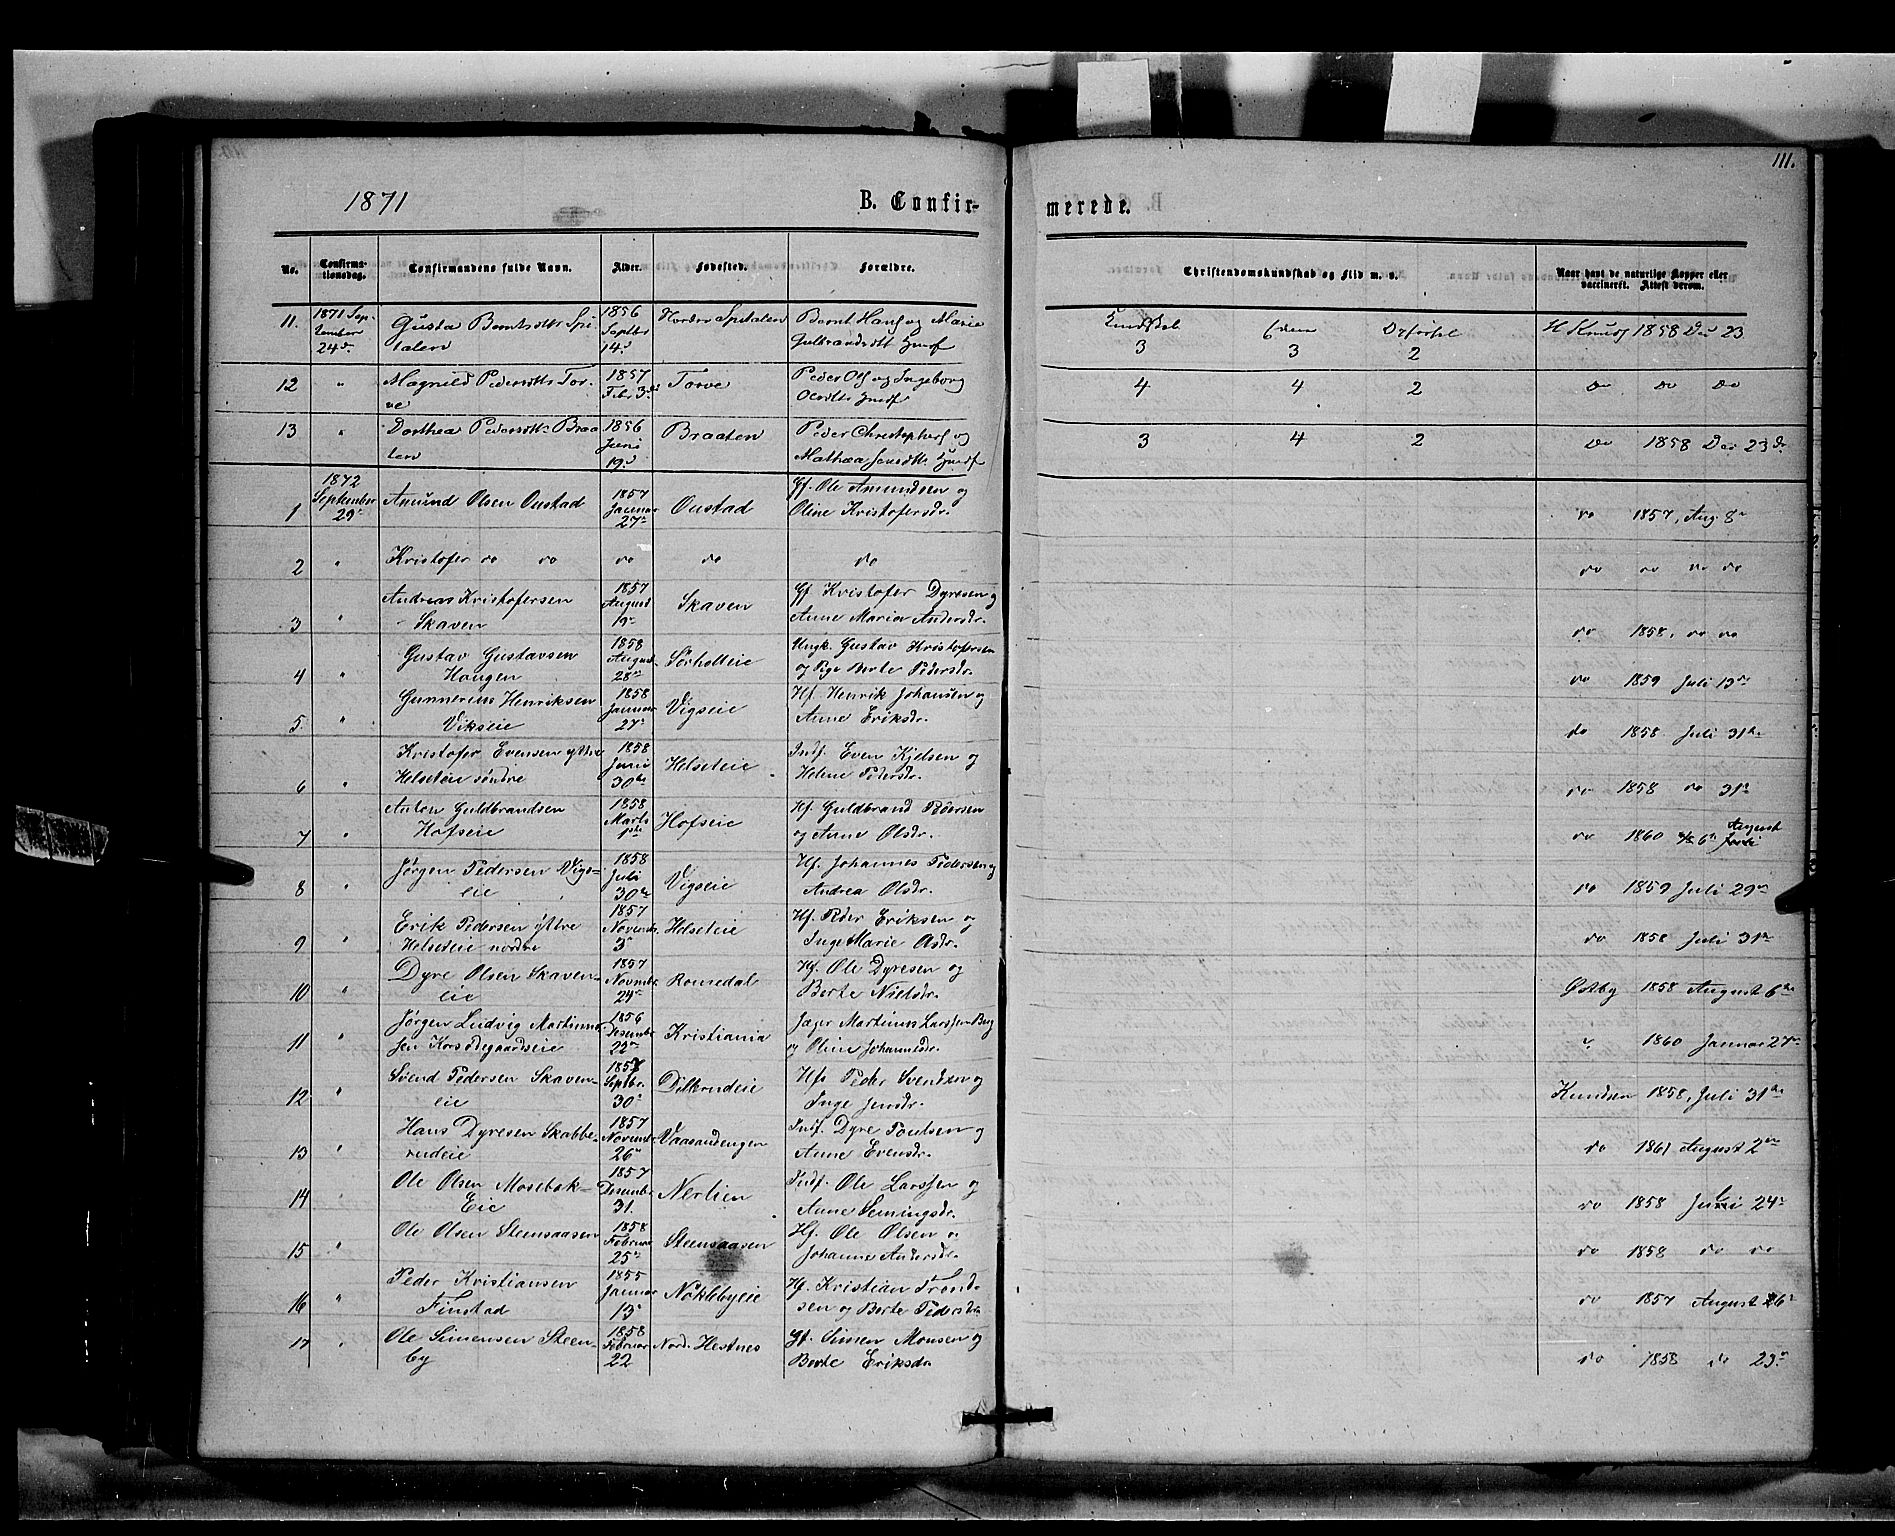 111.
1871 B. Confirmerede.
No. Confirmationsdag. Confirmandens fulde Navn. Alder. Fødested. Forældre. Christendomskundskab og Flid m. v. Naar havt de naturlige Kopper eller vaccineret. Attest derom.
11. 1871 September 24de Gusta Berntsdtr Spitalen 1856 Septbr 14de Nordre Spitalen Bernt Hans og Marie Gulbrandsdtr 3 3 2 H Knuds 1858 23
12 " Magnild Pedersdtr Torve 1857 Febr 3de Torve Peder Ols og Ingeborg Olesdtr 4 4 2 Do Do Do
13 " Dorthea Pedersdtr Braaten 1856 Juni 19de Braaten Peder Christophers og Mathea Jensdtr 3 4 2 Do 1858 23de
1 1872 September 29de Amund Olsen Oustad 1857 Januar 27de Oustad Gf. Ole Amundsen og Oline Kristofersdr. do 1857, Aug. 8de
2 " Kristofer do do do do do do do do do
3 " Andreas Kristofersen Skaven 1857 August Skaven Gf Kristofer Dyresen og Anne Maria Andersdr. do 1858, do do
4 " Gustav Gustavsen Haugen 1858 August 28de Sørholteie Ungk. Gustav Kristofersen og Pige Berte Pedersdr. do 1859 Juli 13de
5 " Gunnerius Henriksen Vikseie 1858 Januar 27de Vigseie Hf. Henrik Johansen og Anne Eriksdr. do 1858 Juli 31te
6 " Kristofer Evensen yttre Helseteie søndre 1858 Juni 30te Helseteie Indf. Even Kjelsen og Helene Pedersdr. do 1858 do 31te
7 " Anton Guldbrandsen Hofseie 1858 Marts 1ste Hofseie Hf. Guldbrand Pedersen og Anne Olsdr. do 1860 6te August
8 " Jørgen Pedersen Vigseie 1858 Juli 30te Vigseie Hf. Johannes Pedersen og Andrea Olsdr. do 1859 Juli 29de
9 " Erik Pedersen yttre Helseteie nordre 1857 Novembr. 3de Helseteie Hf. Peder Eriksen og Inge Marie Olsdr. do 1858 Juli 31te
10 " Dyre Olsen Skaveneie 1857 Novmbr. 24de Romsedal Hf. Ole Dyresen og Berte Nielsdr. Østby 1858 August 6te
11 " Jørgen Ludvig Martinussen Korsødegaardseie 1856 Desembr 22de Kristiania Jæger Martinus Larssen Berg og Oline Johannesdr. " 1860 Januar 27de
12 " Svend Pedersen Skaveneie 1857 Septbr. 30te Dilkrudeie Hf. Peder Svendsen og Inge Jensdr. Knudsen 1858, Juli 31te
13 " Hans Dyresen Skabberudeie 1857 Novemb. 26de Vaasaudengen Indf. Dyre Poulsen og Anne Evensdr. do 1861 August 2den
14 " Ole Olsen Mosebæk-Eie 1857 Desembr 31. Nerlien Indf. Ole Larssen og Anne Semingsdr. do 1858 Juli 24de
15 " Ole Olsen Steensaasen 1858 Februar 25de Steensaasen Hf. Ole Olsen og Johanne Andersdr. do 1858 do do
16 " Peder Kristiansen Finstad 1855 Januar 13de Nøklebyeie Hf. Kristian Trondsen og Berte Pedersdr. do 1857 August 26de
17 " Ole Simensen Steenby 1858 Februar 22 Nord. Hestnes Gf. Simen Monsen og Berte Eriksdr do 1858 do 23de